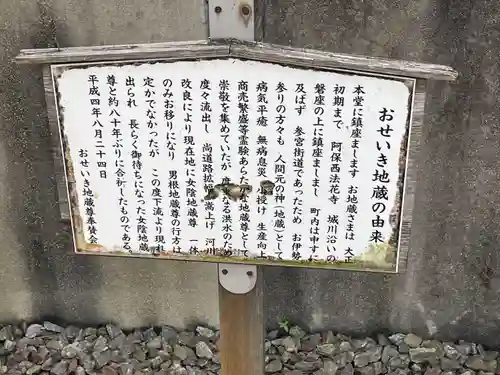 おせいき地蔵の由来
本堂に鎮座まします お地蔵さまは 大正
初期まで 阿保西法花寺 城川沿いの
磐座の上に鎮座ましまし 町内は申すに
及ばず 参宮街道であったため お伊勢
参りの方々も 人間元の神(地蔵)として
病気平癒 無病息災 小授け 生産向上
商売繁盛等霊験あらたかな地蔵尊として
崇敬を集めていたが 度重なる洪水のため
度々流出し 尚道路拡幅 嵩上げ 河川
改良により現在地に女陰地蔵尊 一体
のみお移りになり 男根地蔵尊の行方は
定かでなかったが この度下流より現
出られ 長らく御待ちになった女陰地蔵
尊と約八十年ぶりに合祈したものである。
平成四年八月二十四日
おせいき地蔵尊奉賛会